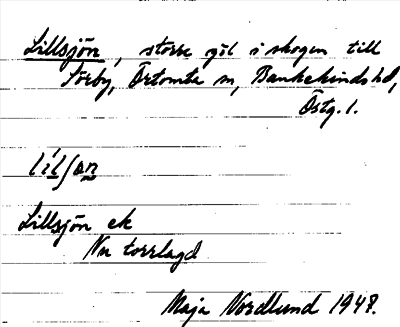 Lillsjön, större göl i skogen till
Sörby, Örtomta sn, Bankekinds hd,
Östg. l.
lílʃøn
Lillsjön ek
Nu torrlagd
Maja Nordlund 1948.